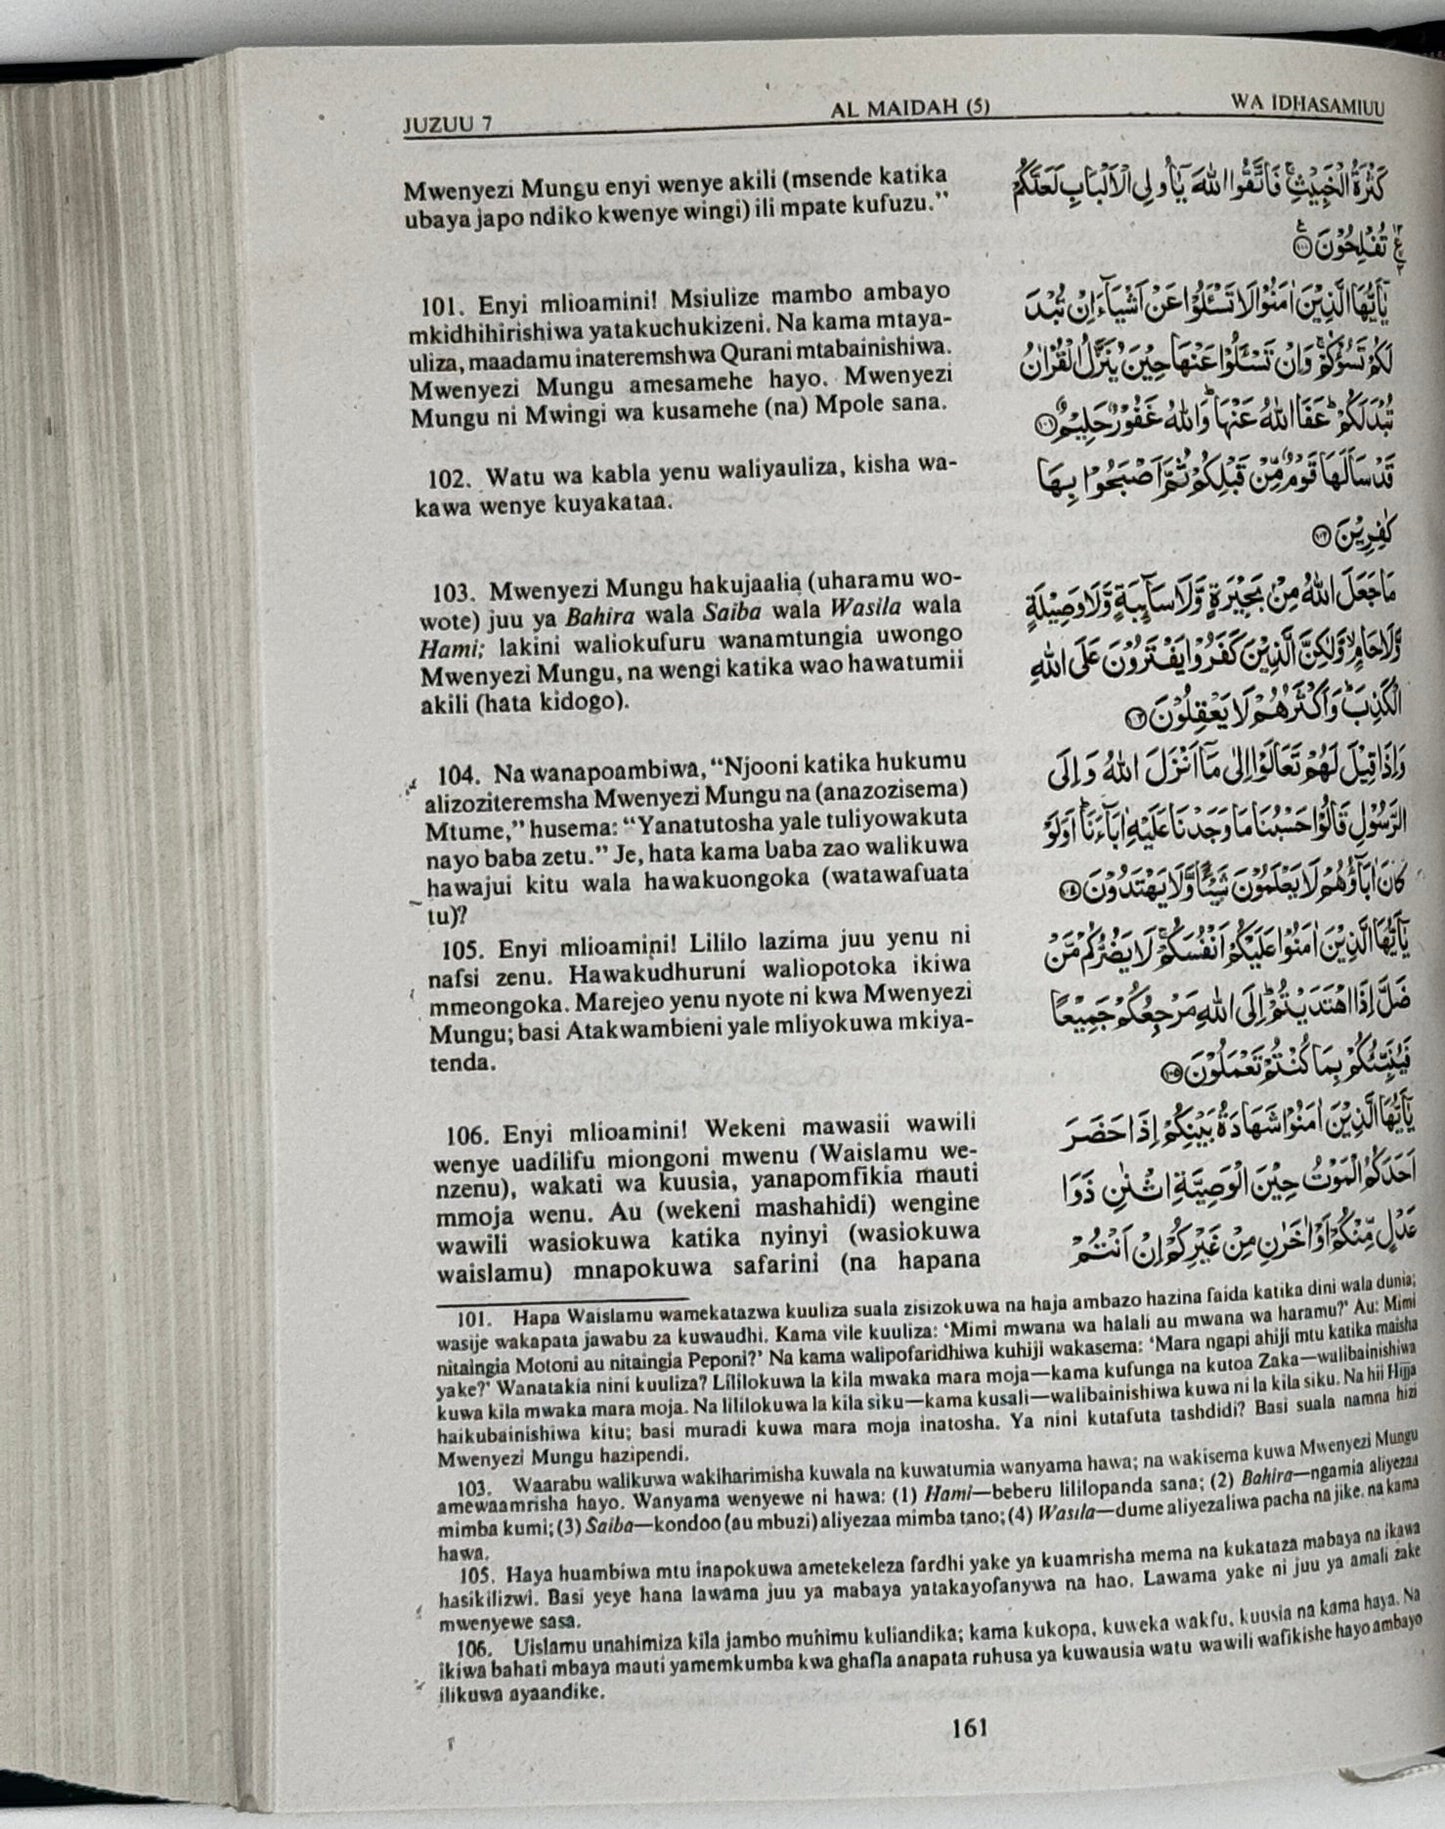 JUZUU 7
AL MAIDAH (5)
WA IDHASAMIUU
Mwenyezi Mungu enyi wenye akili (msende katika
ubaya japo ndiko kwenye wingi) ili mpate kufuzu.”
101. Enyi mlioamini! Msiulize mambo ambayo
mkidhihirishiwa yatakuchukizeni. Na kama mtaya-
uliza, maadamu inateremshwa Qurani mtabainishiwa.
Mwenyezi Mungu amesamehe hayo. Mwenyezi
Mungu ni Mwingi wa kusamehe (na) Mpole sana.
102. Watu wa kabla yenu waliyauliza, kisha wa-
kawa wenye kuyakataa.
103. Mwenyezi Mungu hakujaalia (uharamu wo-
wote) juu ya Bahira wala Saiba wala Wasila wala
Hami; lakini waliokufuru wanamtungia uwongo
Mwenyezi Mungu, na wengi katika wao hawatumii
akili (hata kidogo).
104. Na wanapoambiwa, “Njooni katika hukumu
alizoziteremsha Mwenyezi Mungu na (anazozisema)
Mtume,” husema: “Yanatutosha yale tuliyowakuta
nayo baba zetu.” Je, hata kama baba zao walikuwa
hawajui kitu wala hawakuongoka (watawafuata
tu)?
105. Enyi mlioamini! Lililo lazima juu yenu ni
nafsi zenu. Hawakudhuruni waliopotoka ikiwa
mmeongoka. Marejeo yenu nyote ni kwa Mwenyezi
Mungu; basi Atakwambieni yale mliyokuwa mkiya-
tenda.
106. Enyi mlioamini! Wekeni mawasii wawili
wenye uadilifu miongoni mwenu (Waislamu we-
nzenu), wakati wa kuusia, yanapomfikia mauti
mmoja wenu. Au (wekeni mashahidi) wengine
wawili wasiokuwa katika nyinyi (wasiokuwa
waislamu) mnapokuwa safarini (na hapana
كَثْرَةُ الْخَبِيْثِۚ فَاتَّقُوا اللّٰهَ يٰٓاُولِى الْاَلْبَابِ لَعَلَّكُمْ
تُفْلِحُوْنَ ۝١٠٠
يٰٓاَيُّهَا الَّذِيْنَ اٰمَنُوْا لَا تَسْـَٔلُوْا عَنْ اَشْيَآءَ اِنْ تُبْدَ
لَكُمْ تَسُؤْكُمْۚ وَاِنْ تَسْـَٔلُوْا عَنْهَا حِيْنَ يُنَزَّلُ الْقُرْاٰنُ
تُبْدَ لَكُمْؕ عَفَا اللّٰهُ عَنْهَاؕ وَاللّٰهُ غَفُوْرٌ حَلِيْمٌ ۝١٠١
قَدْ سَاَلَهَا قَوْمٌ مِّنْ قَبْلِكُمْ ثُمَّ اَصْبَحُوْا بِهَا
كٰفِرِيْنَ ۝١٠٢
مَا جَعَلَ اللّٰهُ مِنْۢ بَحِيْرَةٍ وَّلَا سَآىِٕبَةٍ وَّلَا وَصِيْلَةٍ
وَّلَا حَامٍۙ وَّلٰكِنَّ الَّذِيْنَ كَفَرُوْا يَفْتَرُوْنَ عَلَى اللّٰهِ
الْكَذِبَؕ وَاَكْثَرُهُمْ لَا يَعْقِلُوْنَ ۝١٠٣
وَاِذَا قِيْلَ لَهُمْ تَعَالَوْا اِلٰى مَآ اَنْزَلَ اللّٰهُ وَاِلَى
الرَّسُوْلِ قَالُوْا حَسْبُنَا مَا وَجَدْنَا عَلَيْهِ اٰبَآءَنَاؕ اَوَلَوْ
كَانَ اٰبَآؤُهُمْ لَا يَعْلَمُوْنَ شَيْـًٔا وَّلَا يَهْتَدُوْنَ ۝١٠٤
يٰٓاَيُّهَا الَّذِيْنَ اٰمَنُوْا عَلَيْكُمْ اَنْفُسَكُمْۚ لَا يَضُرُّكُمْ مَّنْ
ضَلَّ اِذَا اهْتَدَيْتُمْؕ اِلَى اللّٰهِ مَرْجِعُكُمْ جَمِيْعًا
فَيُنَبِّئُكُمْ بِمَا كُنْتُمْ تَعْمَلُوْنَ ۝١٠٥
يٰٓاَيُّهَا الَّذِيْنَ اٰمَنُوْا شَهَادَةُ بَيْنِكُمْ اِذَا حَضَرَ
اَحَدَكُمُ الْمَوْتُ حِيْنَ الْوَصِيَّةِ اثْنٰنِ ذَوَا
عَدْلٍ مِّنْكُمْ اَوْ اٰخَرٰنِ مِنْ غَيْرِكُمْ اِنْ اَنْتُمْ
101. Hapa Waislamu wamekatazwa kuuliza suala zisizokuwa na haja ambazo hazina faida katika dini wala dunia;
wasije wakapata jawabu za kuwaudhi. Kama vile kuuliza: ‘Mimi mwana wa halali au mwana wa haramu?’ Au: Mimi
nitaingia Motoni au nitaingia Peponi?’ Na kama walipofaridhiwa kuhiji wakasema: ‘Mara ngapi ahiji mtu katika maisha
yake?’ Wanatakia nini kuuliza? Lililokuwa la kila mwaka mara moja—kama kufunga na kutoa Zaka—walibainishiwa
kuwa kila mwaka mara moja. Na lililokuwa la kila siku—kama kusali—walibainishiwa kuwa ni la kila siku. Na hii Hijja
haikubainishiwa kitu; basi muradi kuwa mara moja inatosha. Ya nini kutafuta tashdidi? Basi suala namna hizi
Mwenyezi Mungu hazipendi.
103. Waarabu walikuwa wakiharimisha kuwala na kuwatumia wanyama hawa; na wakisema kuwa Mwenyezi Mungu
amewaamrisha hayo. Wanyama wenyewe ni hawa: (1) Hami—beberu lililopanda sana; (2) Bahira—ngamia aliyezaa
mimba kumi; (3) Saiba—kondoo (au mbuzi) aliyezaa mimba tano; (4) Wasila—dume aliyezaliwa pacha na jike. na kama
hawa.
105. Haya huambiwa mtu inapokuwa ametekeleza fardhi yake ya kuamrisha mema na kukataza mabaya na ikawa
hasikilizwi. Basi yeye hana lawama juu ya mabaya yatakayofanywa na hao. Lawama yake ni juu ya amali zake
mwenyewe sasa.
106. Uislamu unahimiza kila jambo muhimu kuliandika; kama kukopa, kuweka wakfu, kuusia na kama haya. Na
ikiwa bahati mbaya mauti yamemkumba kwa ghafla anapata ruhusa ya kuwausia watu wawili wafikishe hayo ambayo
ilikuwa ayaandike.
161